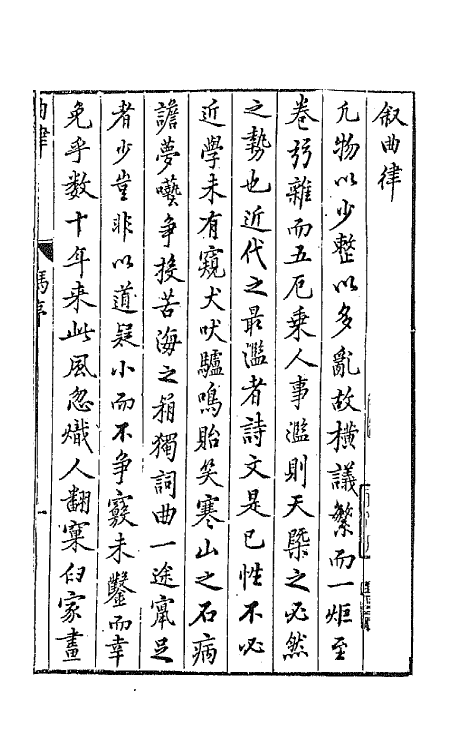 叙曲律
凢物以少整以多亂故横議繁而一炬至
卷弱雜而五厄乗人事濫則天槩之必然
之勢也近代之最濫者詩文是已性不必
近學未有窺犬吠驢鳴貽笑寒山之石病
譫夢囈争投苦海之箱獨詞曲一途窵足
者少豈非以道疑小而不争竅未鑿而幸
免乎数十年来此風忽熾人翻窠臼家畫
曲律
馮序
一